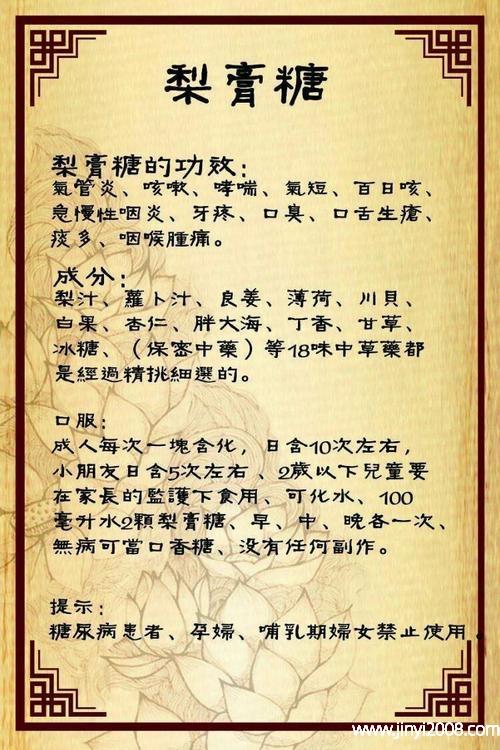 梨膏糖
梨膏糖的功效:
氣管炎、咳嗽、哮喘、氣短、百日咳、
急慢性咽炎、牙疼、口臭、口舌生瘡、
痰多、咽喉腫痛。
成分:
梨汁、蘿卜汁、良姜、薄荷、川貝、
白果、杏仁、胖大海、丁香、甘草、
冰糖、(保密中藥)等18味中草藥都
是經過精挑細選的。
口服:
成人每次一塊含化,日含10次左右,
小朋友日含5次左右、2歲以下兒童要
在家長的監護下食用、可化水、100
毫升水2顆梨膏糖、早、中、晚各一次、
無病可當口香糖、没有任何副作。
提示:
糖尿病患者、孕婦、哺乳期婦女禁止使用。
www.jinyi2008.com